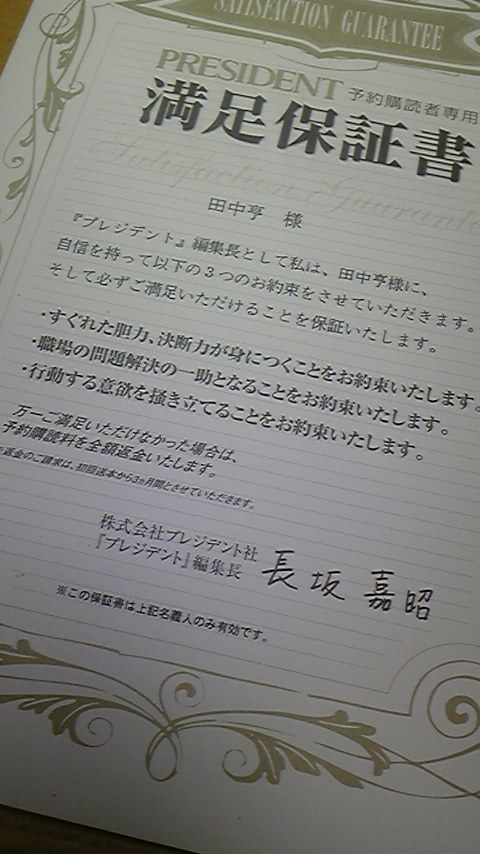 SATISFACTION GUARANTEE
PRESIDENT 予約購読者専用
満足保証書
Satisfaction Guarante
田中亨 様
『プレジデント』編集長として私は、田中亨様に、
自信を持って以下の3つのお約束をさせていただきます。
そして必ずご満足いただけることを保証いたします。
・すぐれた胆力、決断力が身につくことをお約束いたします。
・職場の問題解決の一助となることをお約束いたします。
・行動する意欲を掻き立てることをお約束いたします。
万一ご満足いただけなかった場合は、
予約購読料を全額返金いたします。
※返金のご請求は、初回送本から3ヵ月間とさせていただきます。
株式会社プレジデント社
『プレジデント』編集長 長坂 嘉昭
※この保証書は上記名義人のみ有効です。